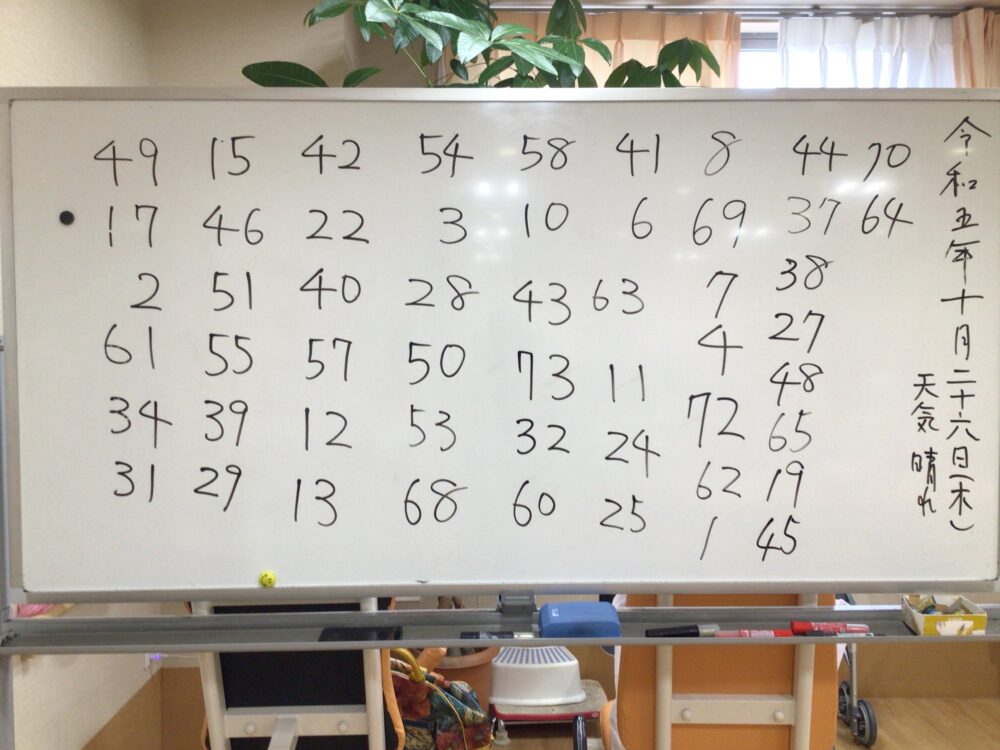 令和五年十月二十六日(木)
天気 晴れ
49 15 42 54 58 41 8 44 70
17 46 22 3 10 6 69 37 64
2 51 40 28 43 63 7 38
61 55 57 50 73 11 4 27
34 39 12 53 32 24 72 48
31 29 13 68 60 25 62 65
1 19
45